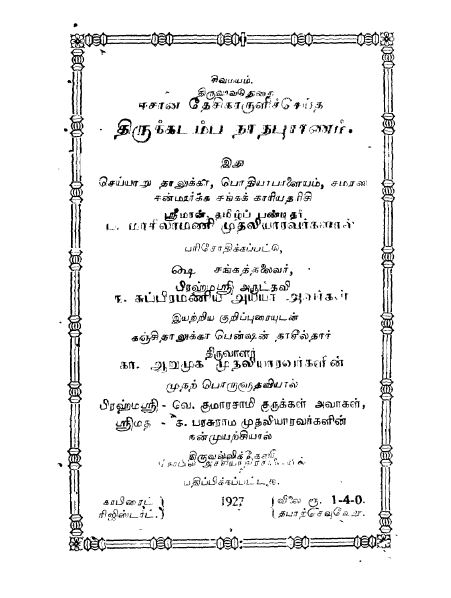 சிவமயம்.
திருவாவடுதுறை
ஈசான தேசிகரருளிச்செய்த
திருக்கடம்ப நாதபுராணம்.
இது
செய்யாறு தாலுக்கா, பொதியாபாளையம், சமரஸ
சன்மார்க்க சங்கக் காரியதரிசி
ஸ்ரீமான், தமிழ்ப் பண்டிதர்
ப. மாசிலாமணி முதலியாரவர்களால்
பரிசோதிக்கப்பட்டு,
ஷை சங்கத்தலைவர்,
பிரஹ்மஸ்ரீ அருட்கவி
ந. சுப்பிரமணிய அய்யா அவர்கள்
இயற்றிய குறிப்புரையுடன்
கஞ்சிதாலுக்கா பென்ஷன் தாசில்தார்
திருவாளர்
கா. ஆறுமுக முதலியாரவர்களின்
முதற் பொருளுதவியால்
பிரஹ்மஸ்ரீ - வே. குமாரசாமி குருக்கள் அவர்கள்,
ஸ்ரீமத் - க. பரசுராம முதலியாரவர்களின்
நன்முயற்சியால்
பதிப்பிக்கப்பட்டது.
காபிரைட்
ரிஜிஸ்டர்ட்.
1927
விலை ரூ. 1-4-0.
தபாற்செலவுவேறு.